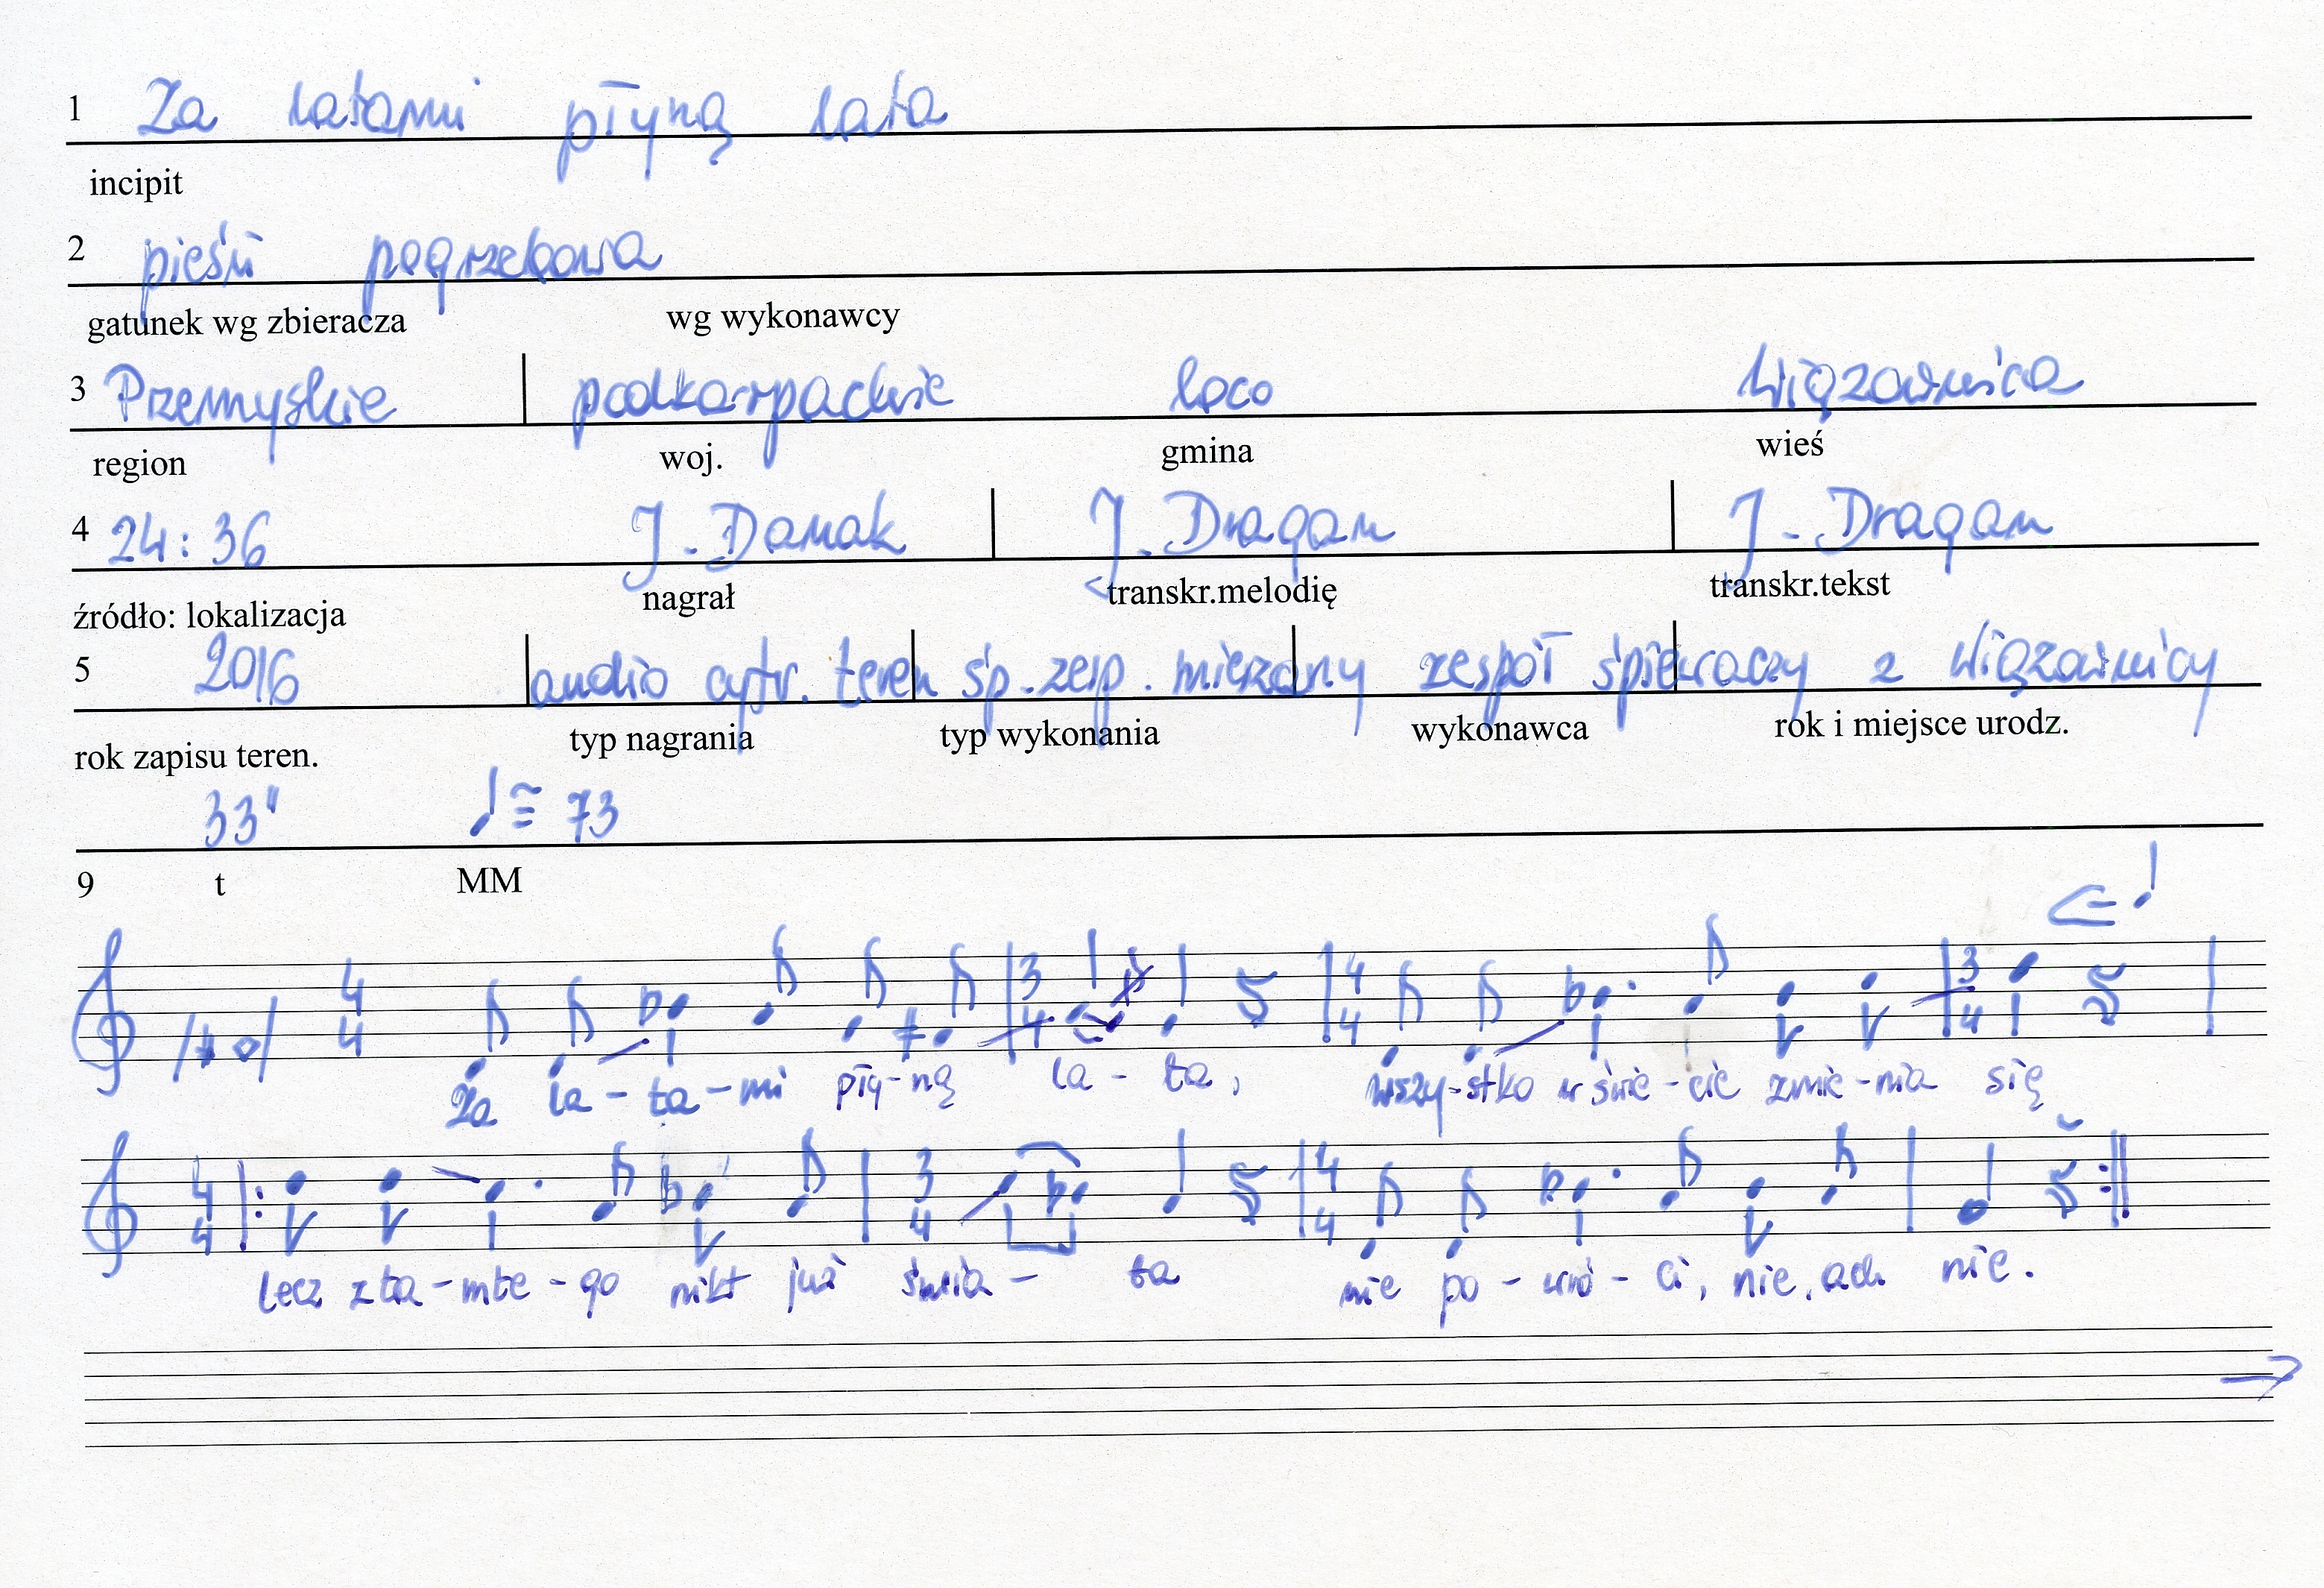 1 Za latami płyną lata
incipit
2 pieśń pogrzebowa
gatunek wg zbieracza wg wykonawcy
3 Przemyskie podkarpackie loco Wiązownica
region woj. gmina wieś
4 24:36 J. Danak J. Dragan J. Dragan
źródło: lokalizacja nagrał transkr.melodię transkr.tekst
5 2016 audio cyfr. teren śp. zesp. mieszany zespół śpiewaczy z Wiązownicy
rok zapisu teren. typ nagrania typ wykonania wykonawca rok i miejsce urodz.
33" ♩ ≅ 73
9 t MM
4/4 3/4 4/4 3/4
Za la-ta-mi pły-ną la-ta, wszy-stko w świe-cie zmie-nia się
4/4 3/4 4/4
lecz z ta-mte-go nikt już świa-ta nie po-wró-ci, nie, ach nie.